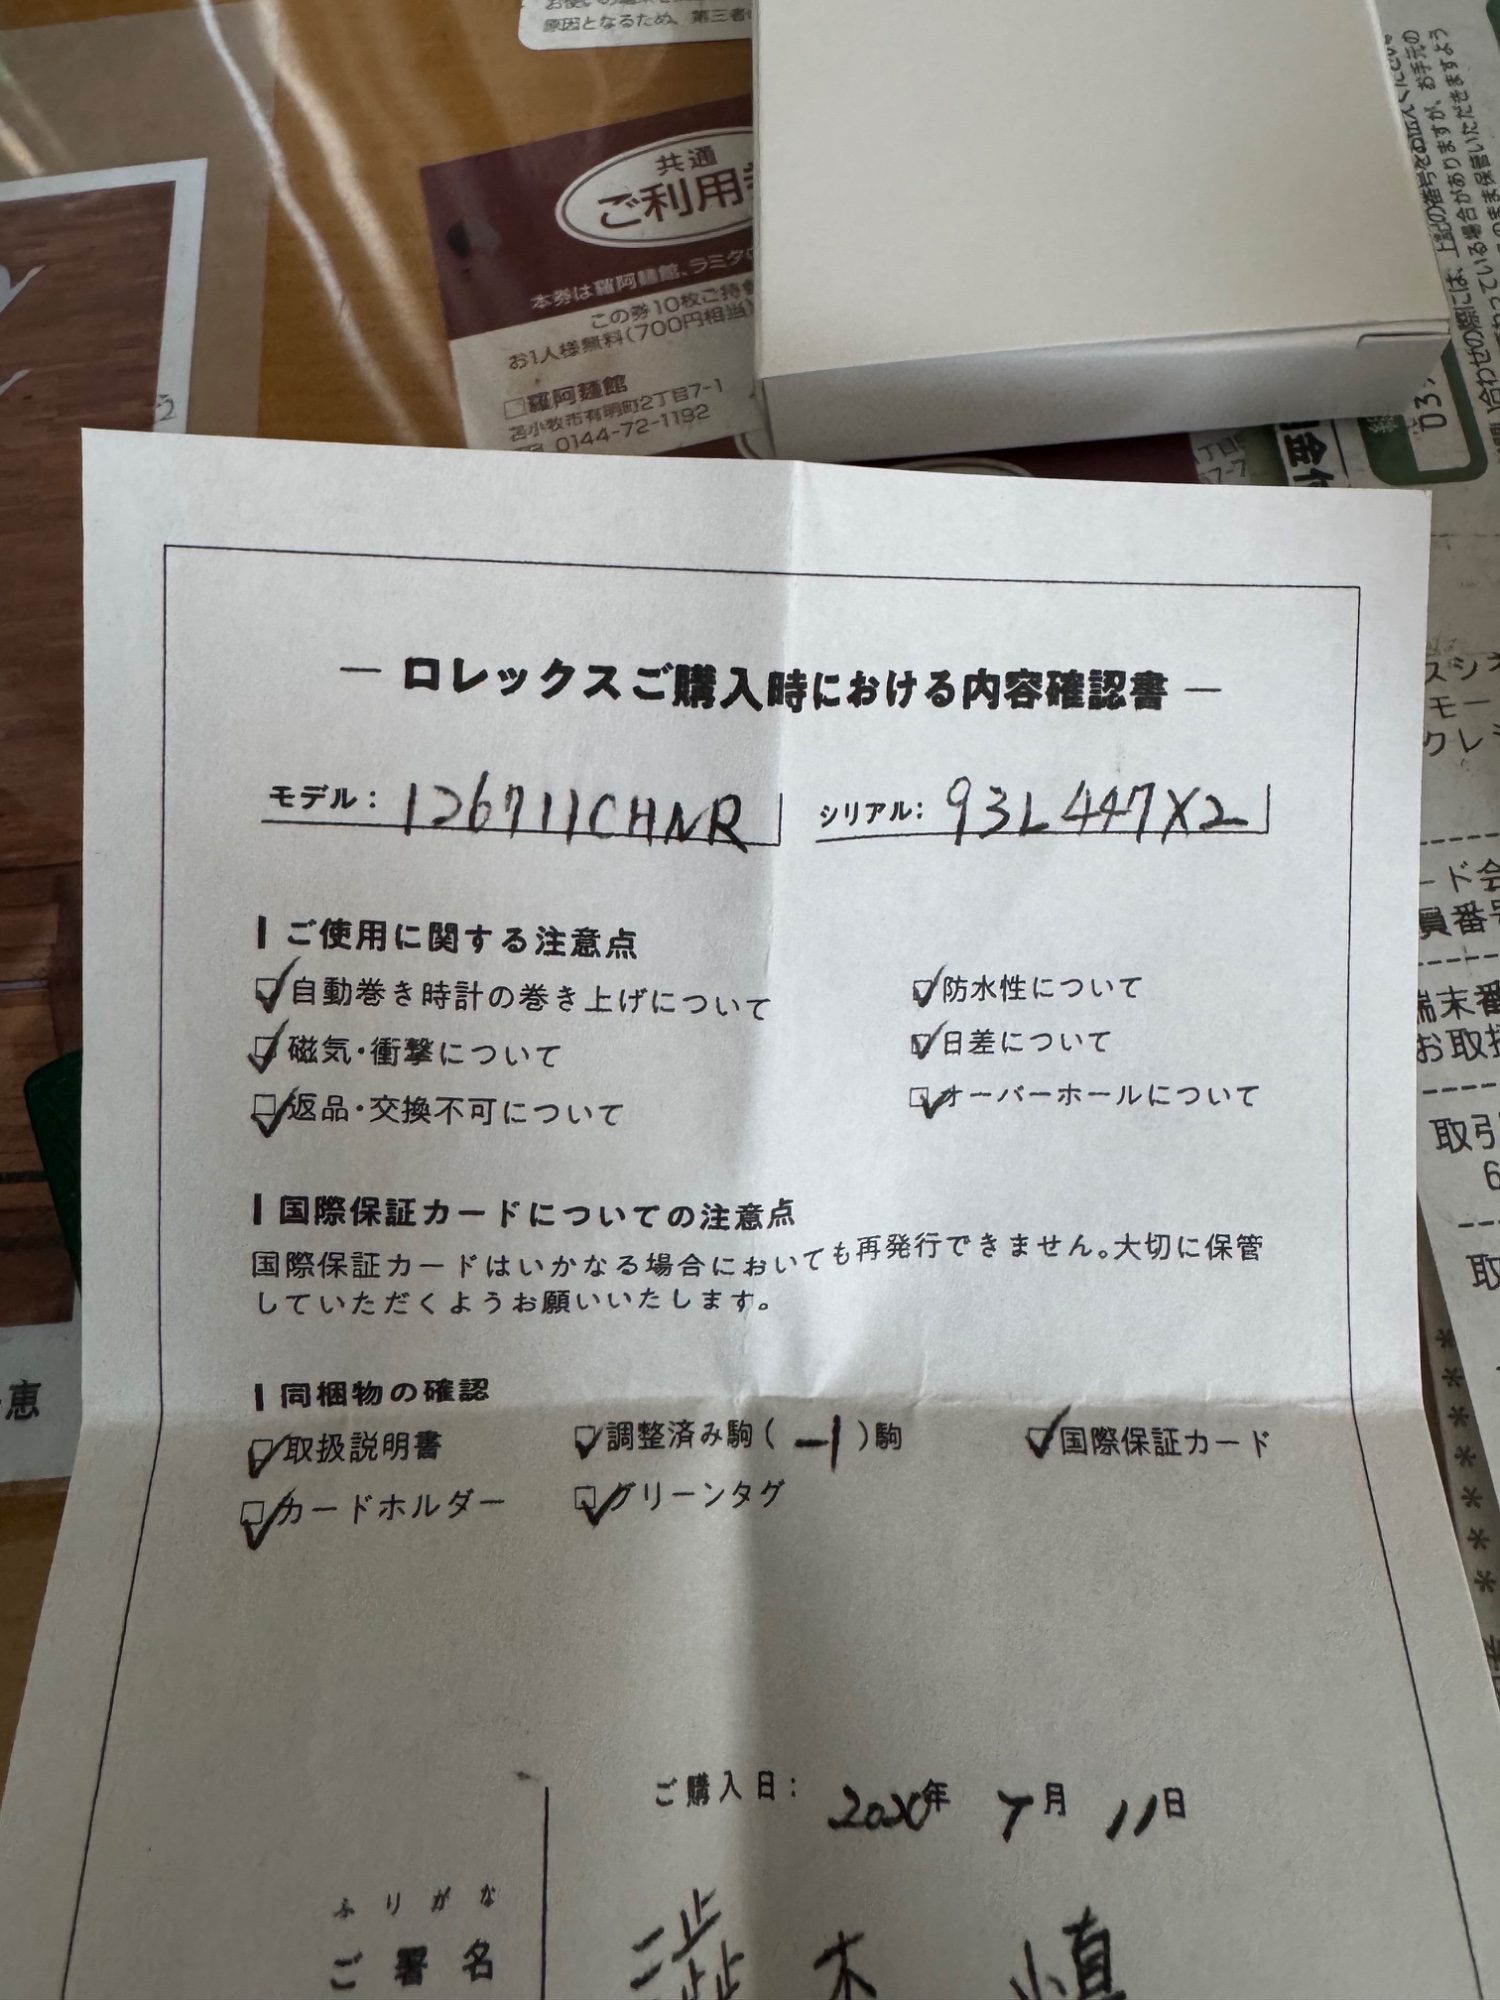 原因となるため、第三者
共通
ご利用
本券は羅阿麺館、ラミタ
この券10枚ご持
お1人様無料(700円相当)
羅阿麺館
苫小牧市有明町2丁目7-1
TEL 0144-72-1192
— ロレックスご購入時における内容確認書 —
モデル: 126711CHNR シリアル: 93L447X2
ご使用に関する注意点
自動巻き時計の巻き上げについて 防水性について
磁気・衝撃について 日差について
返品・交換不可について オーバーホールについて
国際保証カードについての注意点
国際保証カードはいかなる場合においても再発行できません。大切に保管
していただくようお願いいたします。
同梱物の確認
取扱説明書 調整済み駒( -1 )駒 国際保証カード
カードホルダー グリーンタグ
ご購入日: 年 7月 11日
ふりがな
ご署名 澁木 慎
恵
スシ
モー
クレ
ード会
員番号
端末番
お取扱
取引
6
取